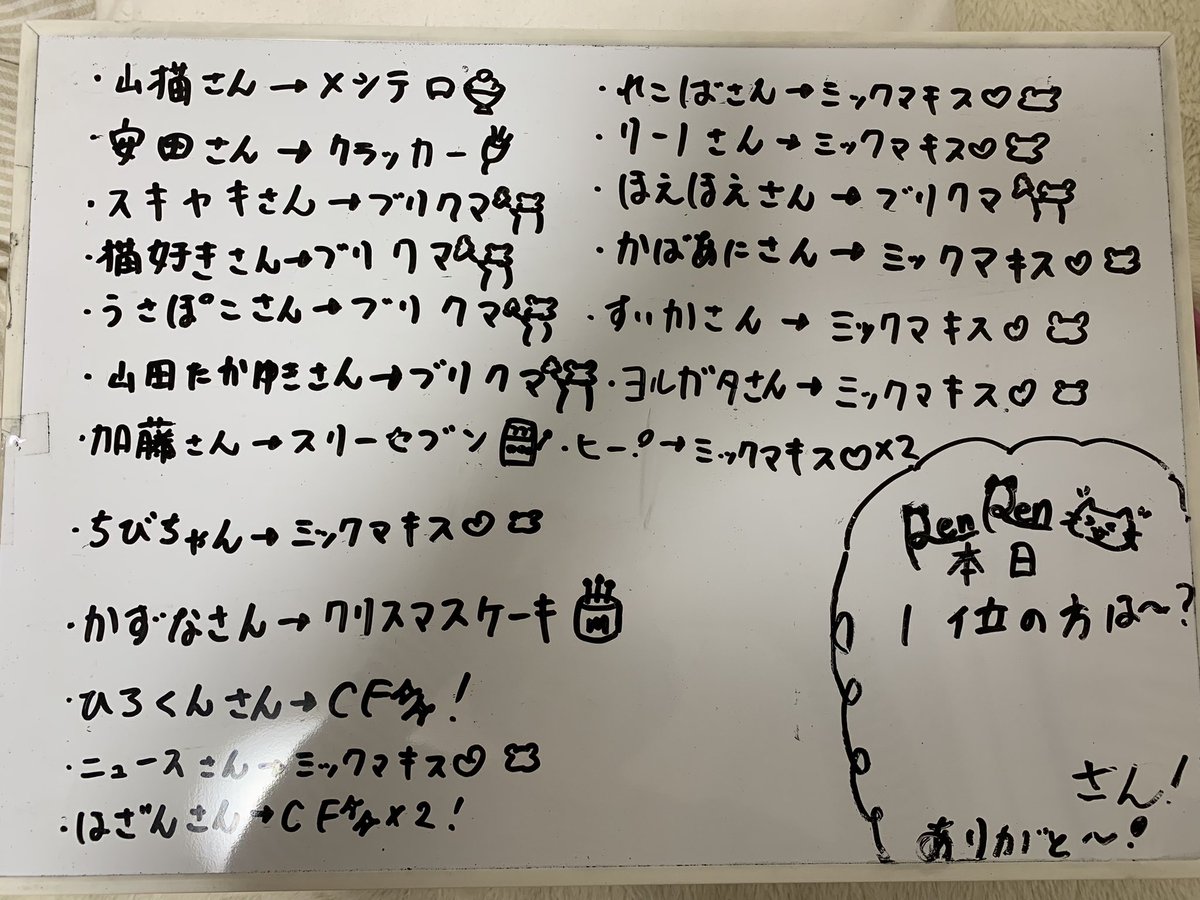 ・山猫さん→メシテロ
・安田さん→クラッカー
・スキヤキさん→ブリクマ
・猫好きさん→ブリクマ
・うさぽこさん→ブリクマ
・山田たかゆきさん→ブリクマ
・加藤さん→スリーセブン
・ちびちゃん→ミックマキス♡
・かずなさん→クリスマスケーキ
・ひろくんさん→CF!
・ニュースさん→ミックマキス♡
・はざんさん→CF×2!
・れこばさん→ミックマキス♡
・リーノさん→ミックマキス♡
・ほえほえさん→ブリクマ
・かばあにさん→ミックマキス♡
・すいかさん→ミックマキス♡
・ヨルガタさん→ミックマキス♡
・ヒー!→ミックマキス♡×2
RenRen
本日
1位の方は〜?
さん!
ありがと〜!